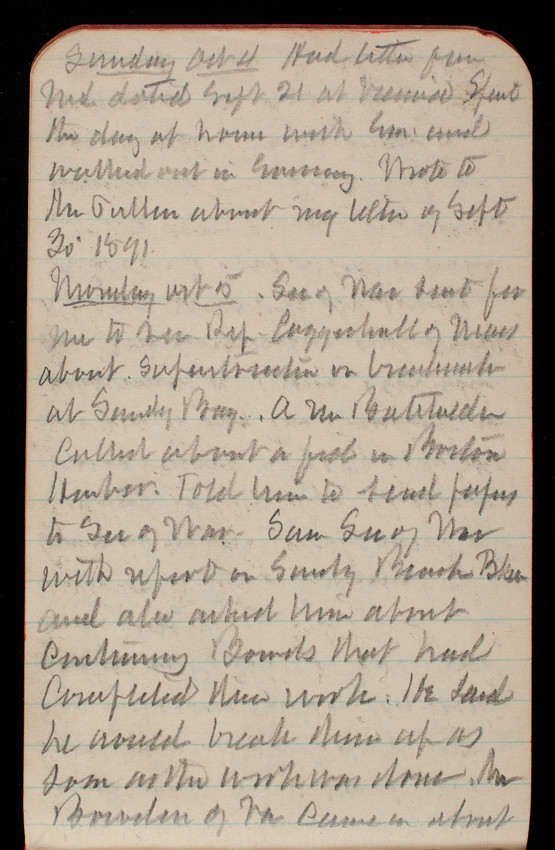 Sunday Oct 4 Had letter from
Ned dated Sept 21 at Vienna. Spent
the day at home with Em and
walked out in evening. Wrote to
Mr Tullen about my letter of Sept
30 1891.
Monday Oct 5. Sec of War sent for
me to see Rep Coggeshall of Mass
about superstructure on breakwater
at Sandy Bay. A Mr
called about a pier in Boston
Harbor. Told him to send papers
to Sec of War. Saw Sec of War
with report on Sandy Beach
and also asked him about
continuing Boards that had
completed their work. He said
he would break them up as
soon as the work was done. Mr
Bowden of Va came in about